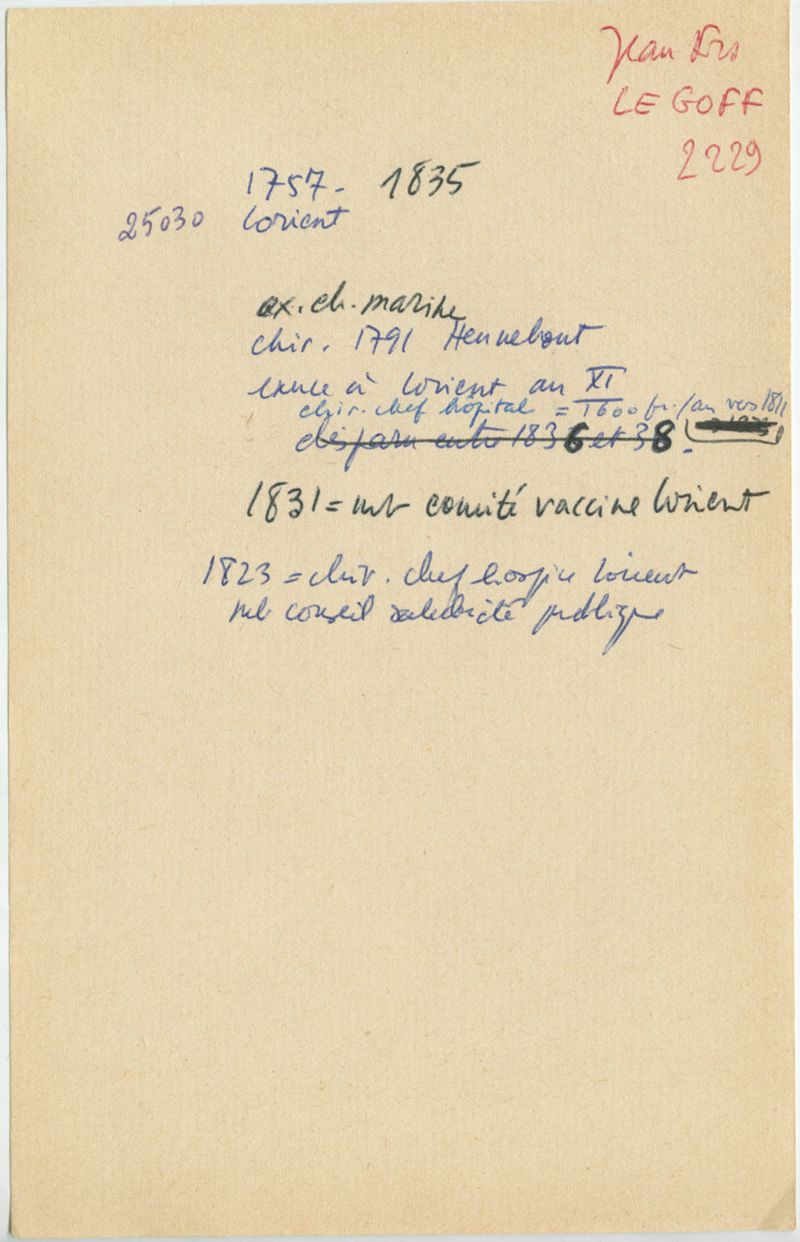 Jean Frs
LE GOFF
2229
1757 - 1835
25030 Lorient
ex. ch. marine
chir. 1791 Hennebont
exerce à Lorient an XI
chir. chef hôpital = 1600 fr./an vers 1811
disparu entre 1836 et 38.
1831 = mb comité vaccine Lorient
1823 = chir. chef hospice Lorient
mb conseil salubrité publique